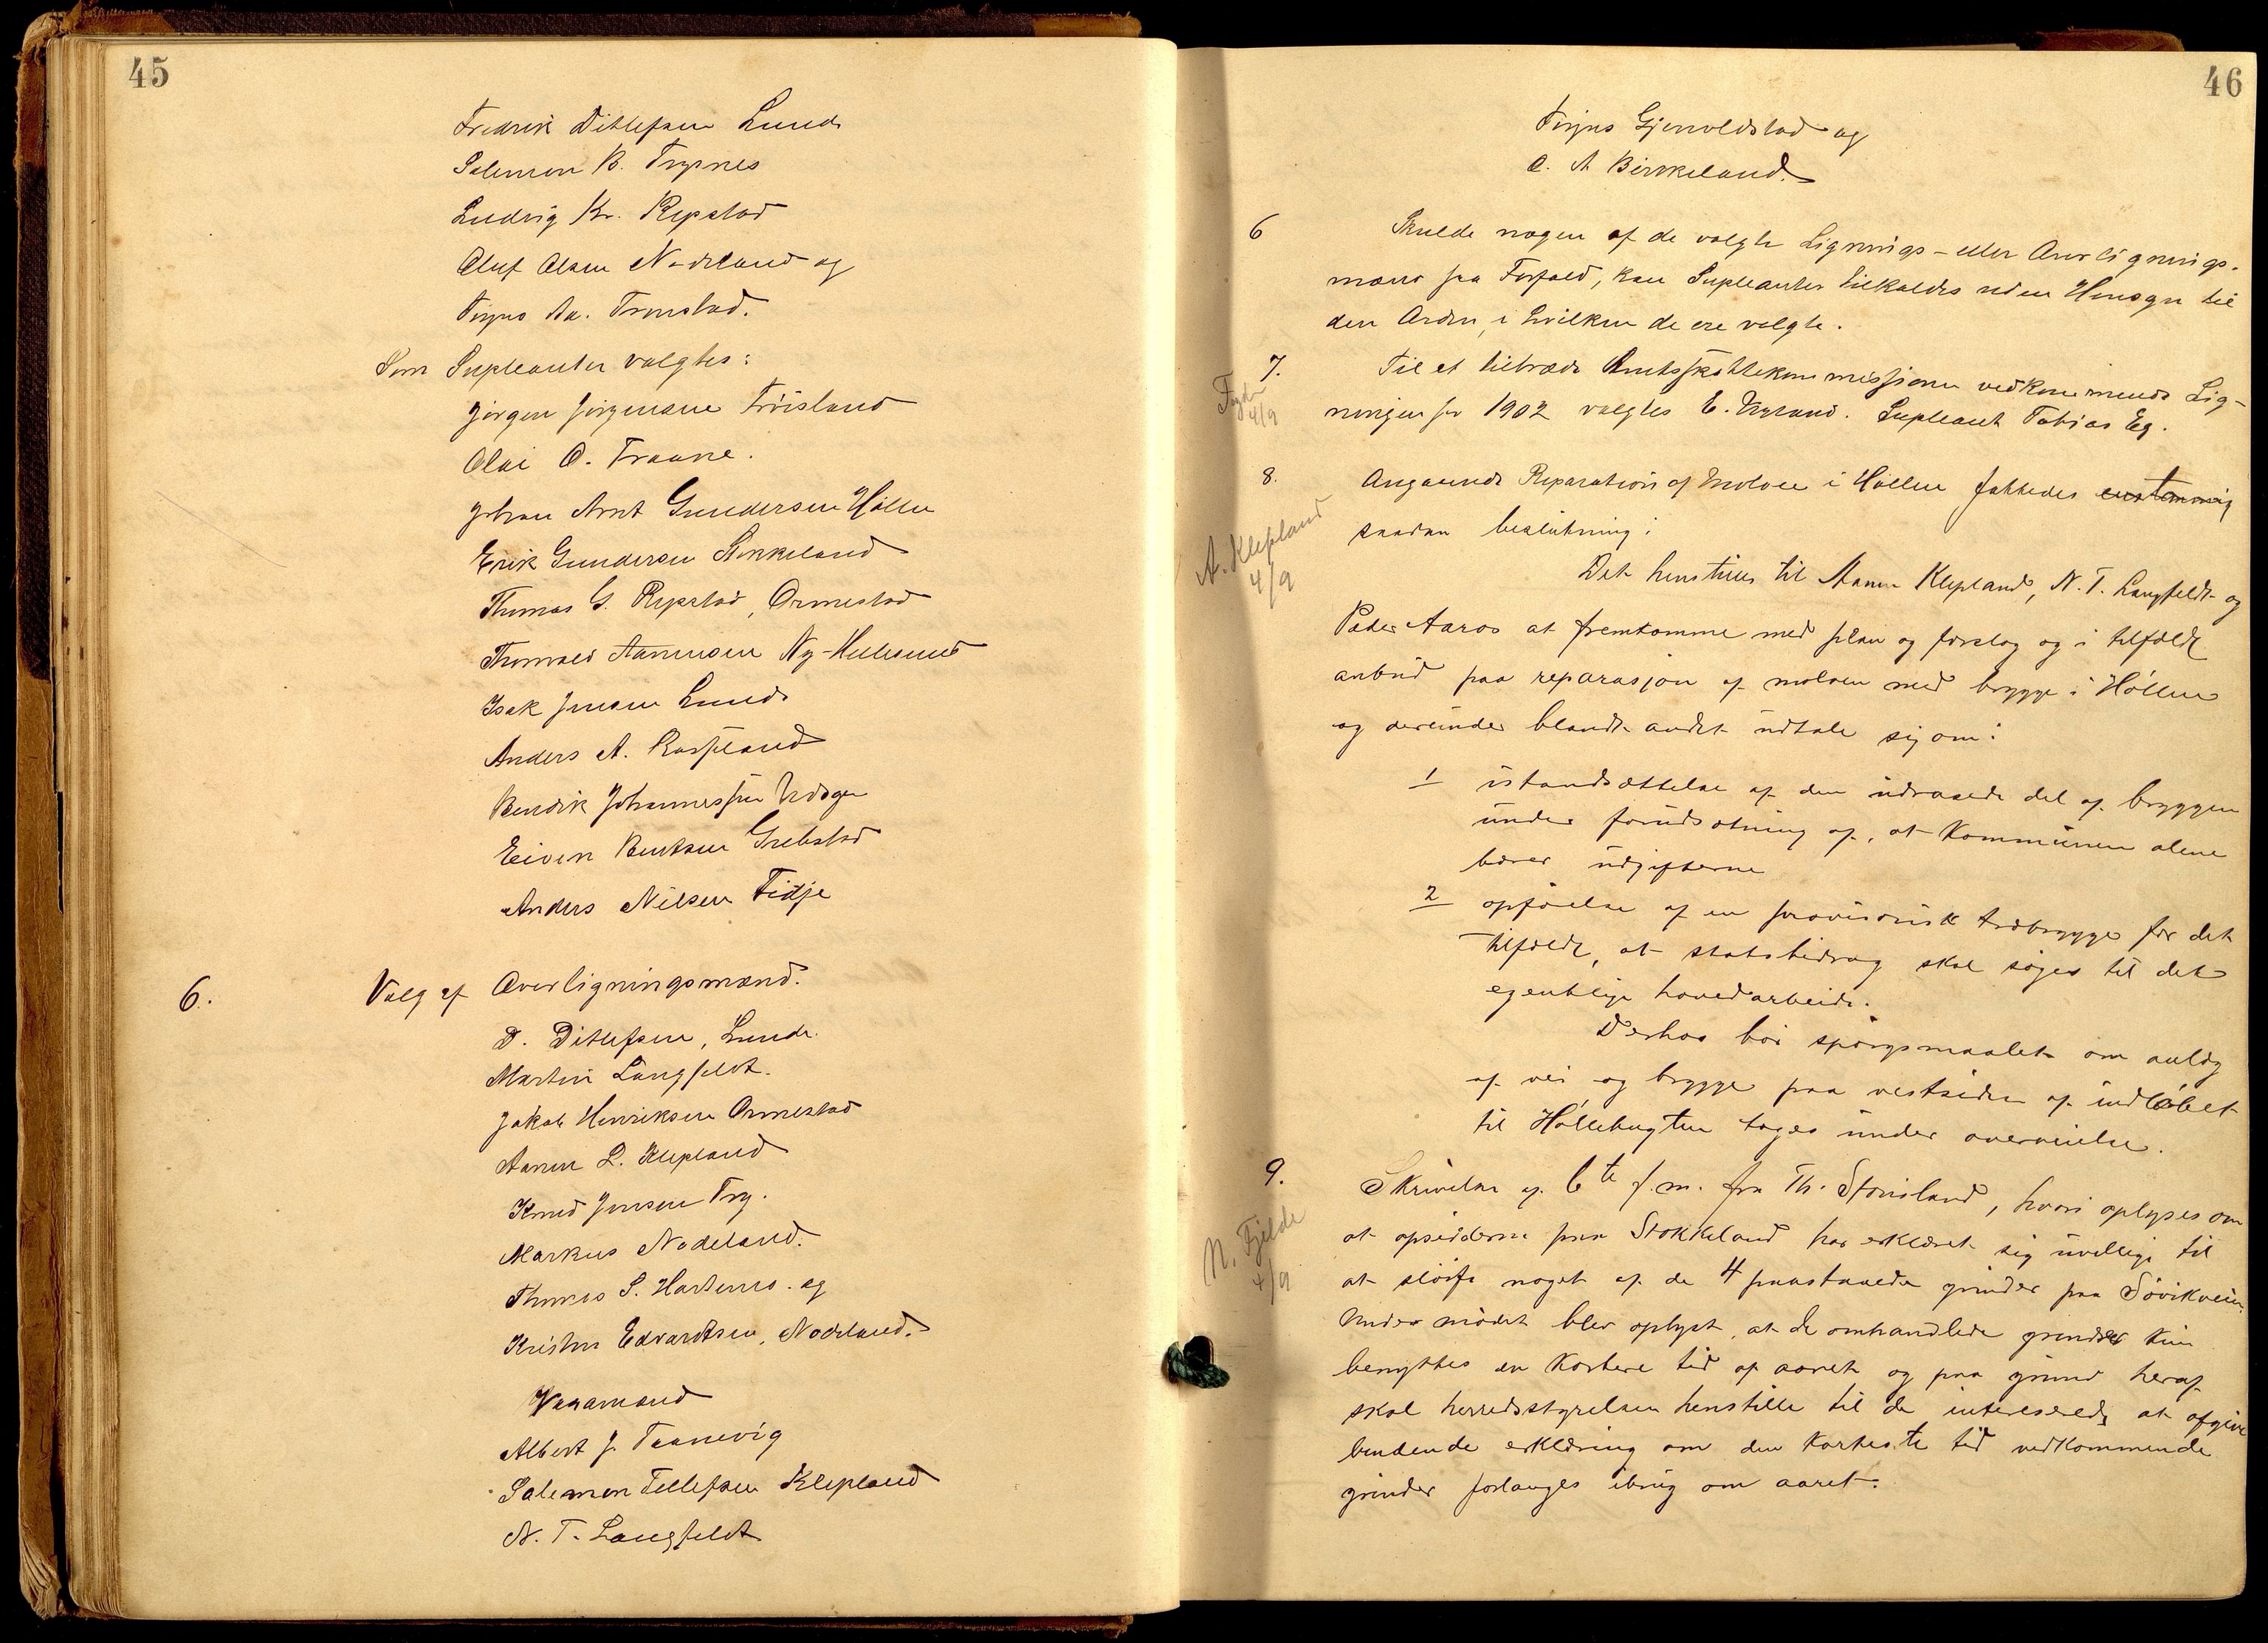 45
Fredrik Ditlefsen Lunde
Salemon B. Trysnes
Ludvig Kr. Repstad
Oluf Olsen Nodeland og
Tirjus Aa. Tronstad.
Som Supleanter valgtes:
Jørgen Jørgensen Frøisland
Olai O. Traane.
Johan Arnt Gundersen Høllen
Erik Gundersen Stokkeland
Thomas G. Repstad, Ormestad
Thorvald Aanensen Ny-Hellesund
Isak Jensen Lunde
Anders A.
Bendik Johannessen
Eiven Berntsen Grebstad
Anders Nilsen Fidje
6. Valg af Overligningsmænd.
D. Ditlefsen, Lunde.
Martin Langfeldt.
Jakob Henriksen Ormestad
Aanen L. Klepland
Knud Jensen Try.
Markus Nodeland.
Thomas S. Hortemo. og
Kristen Edvardsen, Nodeland.
Varamænd
Albert J. Taanevig
Salemon Tellefsen Klepland
N. T. Langfeldt
46
Tirjus Gjervoldstad og
O. A Birkeland.
6 Skulde nogen af de valgte Lignings- eller Overlignings-
mænd faa Forfald, kan Supleanter tilkaldes uden Hensyn til
den Orden, i hvilken de ere valgte.
7. Til at tiltræde Amtsskattekommissionen vedkommende Lig-
ningen for 1902 valgtes E. Nyland. Supleant Tobias Eg.
4/9
8. Angaaende Reparation af Moloen i Høllen fattedes enstemmig
saadan beslutning:
A. Klepland
4/9
Det henstilles til Aanen Klepland, N. T. Langfeldt og
Peder Aaros at fremkomme med plan og forslag og i tilfælde
anbud paa reparasjon af moloen med brygge i Høllen
og derunder blandt andet udtale sig om:
1 istandsættelse af den udrasede del af bryggen
under forudsætning af, at Kommunen alene
bærer udgifterne
2 opførelse af en provisorisk træbrygge for det
tilfælde, at statsbidrag skal søges til det
egentlige hovedarbeide.
Derhos bør spørgsmaalet om anlæg
af vei og brygge paa vestsiden af indløbet
til Høllebugten tages under overveielse.
9. Skrivelse af 6te f. m. fra Th. Stousland, hvori oplyses om
at opsidderne paa Stokkeland har erklæret sig uvillige til
at sløife noget af de 4 paastaaede grinder paa Søvikveien.
N. Fjelde
4/9
Under mødet blev oplyst, at de omhandlede grinder kun
benyttes en kortere tid af aaret og paa grund heraf
skal herredsstyrelsen henstille til de interesserede at afgive
bindende erklæring om den korteste tid vedkommende
grinder forlanges ibrug om aaret.